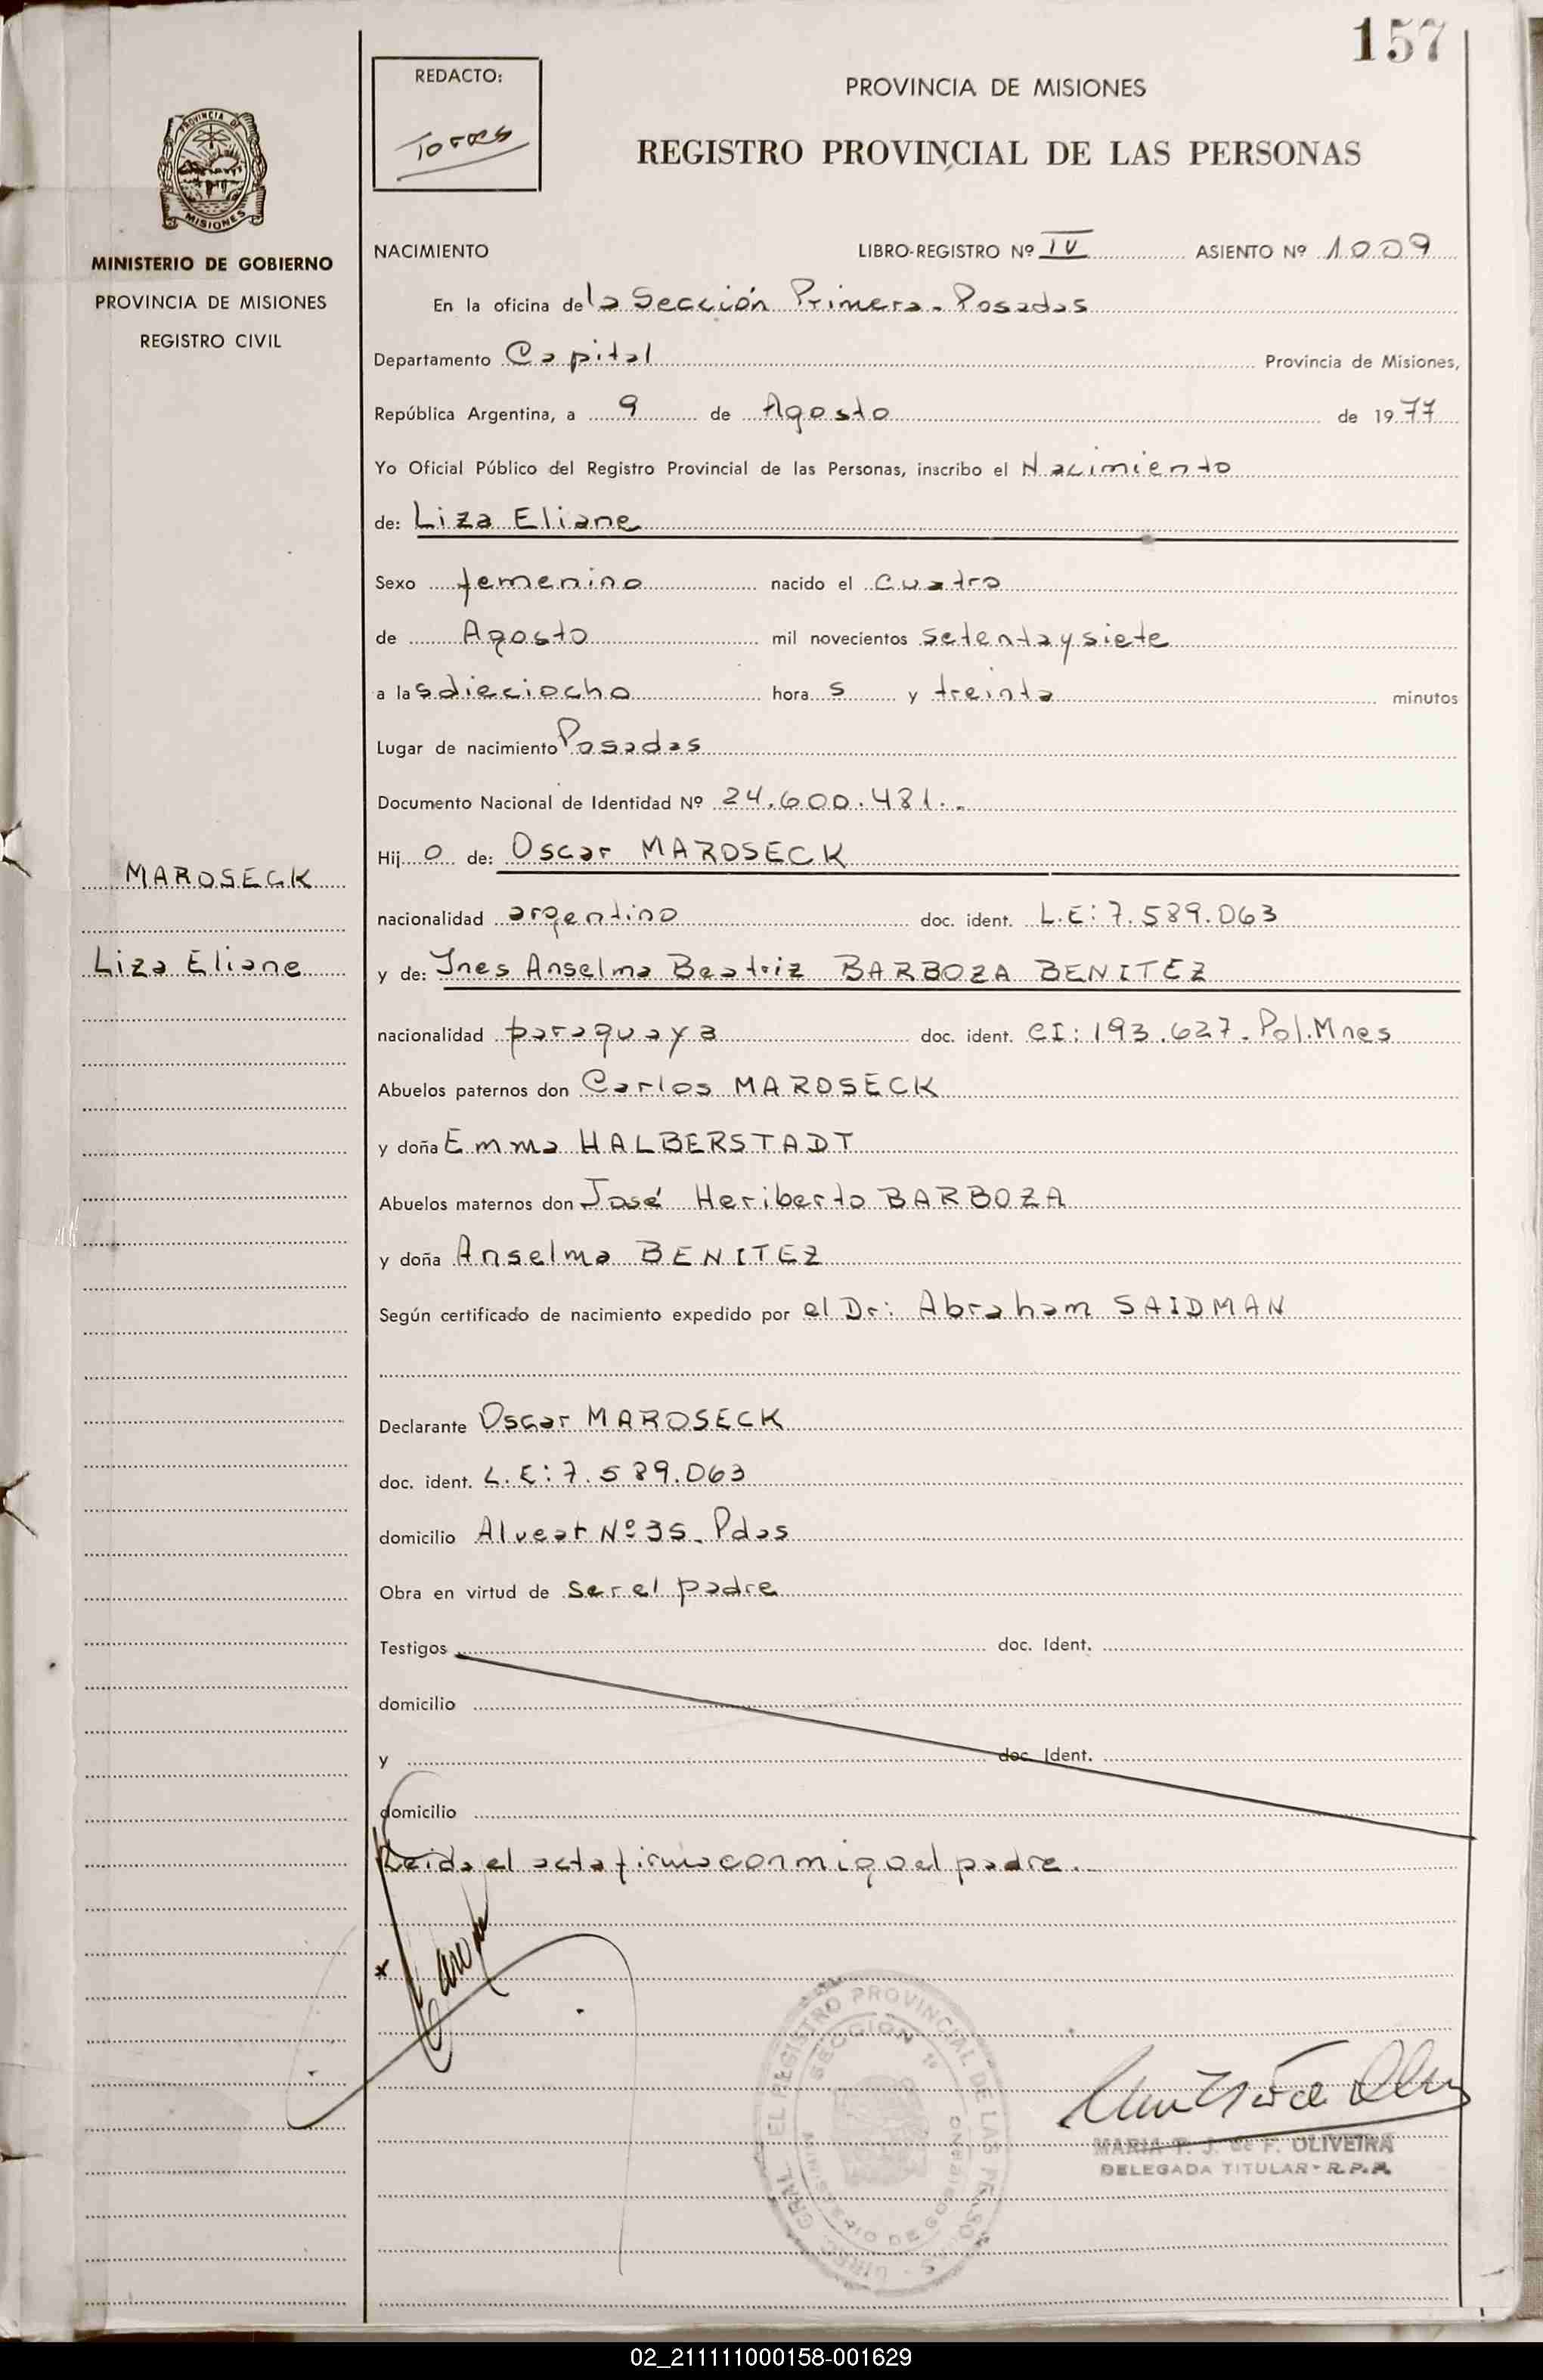 157
REDACTO:
Torres
PROVINCIA DE MISIONES
REGISTRO PROVINCIAL DE LAS PERSONAS
PROVINCIA DE
MISIONES
MINISTERIO DE GOBIERNO
PROVINCIA DE MISIONES
REGISTRO CIVIL
NACIMIENTO LIBRO-REGISTRO Nº IV ASIENTO Nº 1009
En la oficina de la Sección Primera - Posadas
Departamento Capital Provincia de Misiones,
República Argentina, a 9 de Agosto de 1977
Yo Oficial Público del Registro Provincial de las Personas, inscribo el Nacimiento
de: Liza Eliane
Sexo femenino nacido el cuatro
de Agosto mil novecientos setenta y siete
a las dieciocho hora s y treinta minutos
Lugar de nacimiento Posadas
Documento Nacional de Identidad Nº 24.600.481.-
Hij o de: Oscar MAROSECK
MAROSECK
nacionalidad argentino doc. ident. L.E: 7.589.063
Liza Eliane
y de: Ines Anselma Beatriz BARBOZA BENITEZ
nacionalidad paraguaya doc. ident. CI: 193.627. Pol. Mnes
Abuelos paternos don Carlos MAROSECK
y doña Emma HALBERSTADT
Abuelos maternos don José Heriberto BARBOZA
y doña Anselma BENITEZ
Según certificado de nacimiento expedido por el Dr: Abraham SAIDMAN
Declarante Oscar MAROSECK
doc. ident. L.E: 7.589.063
domicilio Alvear Nº 35. Pdas
Obra en virtud de ser el padre
Testigos doc. Ident.
domicilio
y doc. Ident.
domicilio
Leida el acta firma conmigo el padre.
x
DIREC. GRAL. DEL REGISTRO PROVINCIAL DE LAS PERSONAS
SECCION 1ª
MINISTERIO DE GOBIERNO
MARIA T. J. de F. OLIVEIRA
DELEGADA TITULAR - R.P.P.
02_211111000158-001629